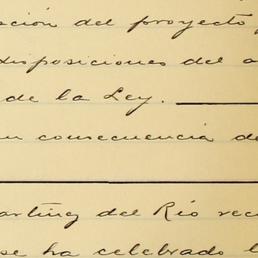 ción del proyecto
disposiciones del a
de la Ley.
en consecuencia de
arting del Río rec
se ha celebrado l